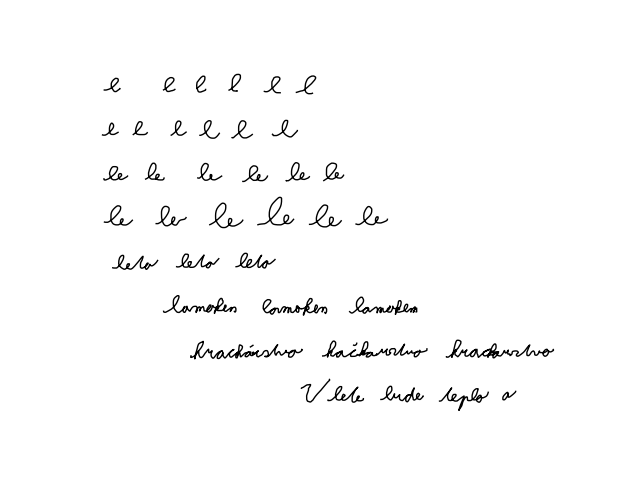 e e l l l l
e e l l l l
le le le le le le
le le le le le le
leto leto leto
lamoken lamoken lamoken
hračkárstvo hračkarstvo hračkarstvo
V lete bude teplo a